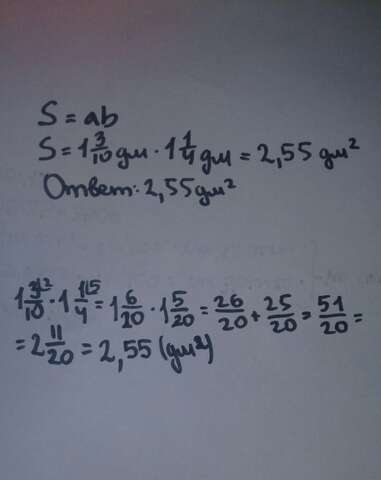 S = ab
S = 1 3/10 дм · 1 1/4 дм = 2,55 дм²
Ответ: 2,55 дм²
1 3/10 · 1 1/4 = 1 6/20 · 1 5/20 = 26/20 + 25/20 = 51/20 =
= 2 11/20 = 2,55 (дм²)